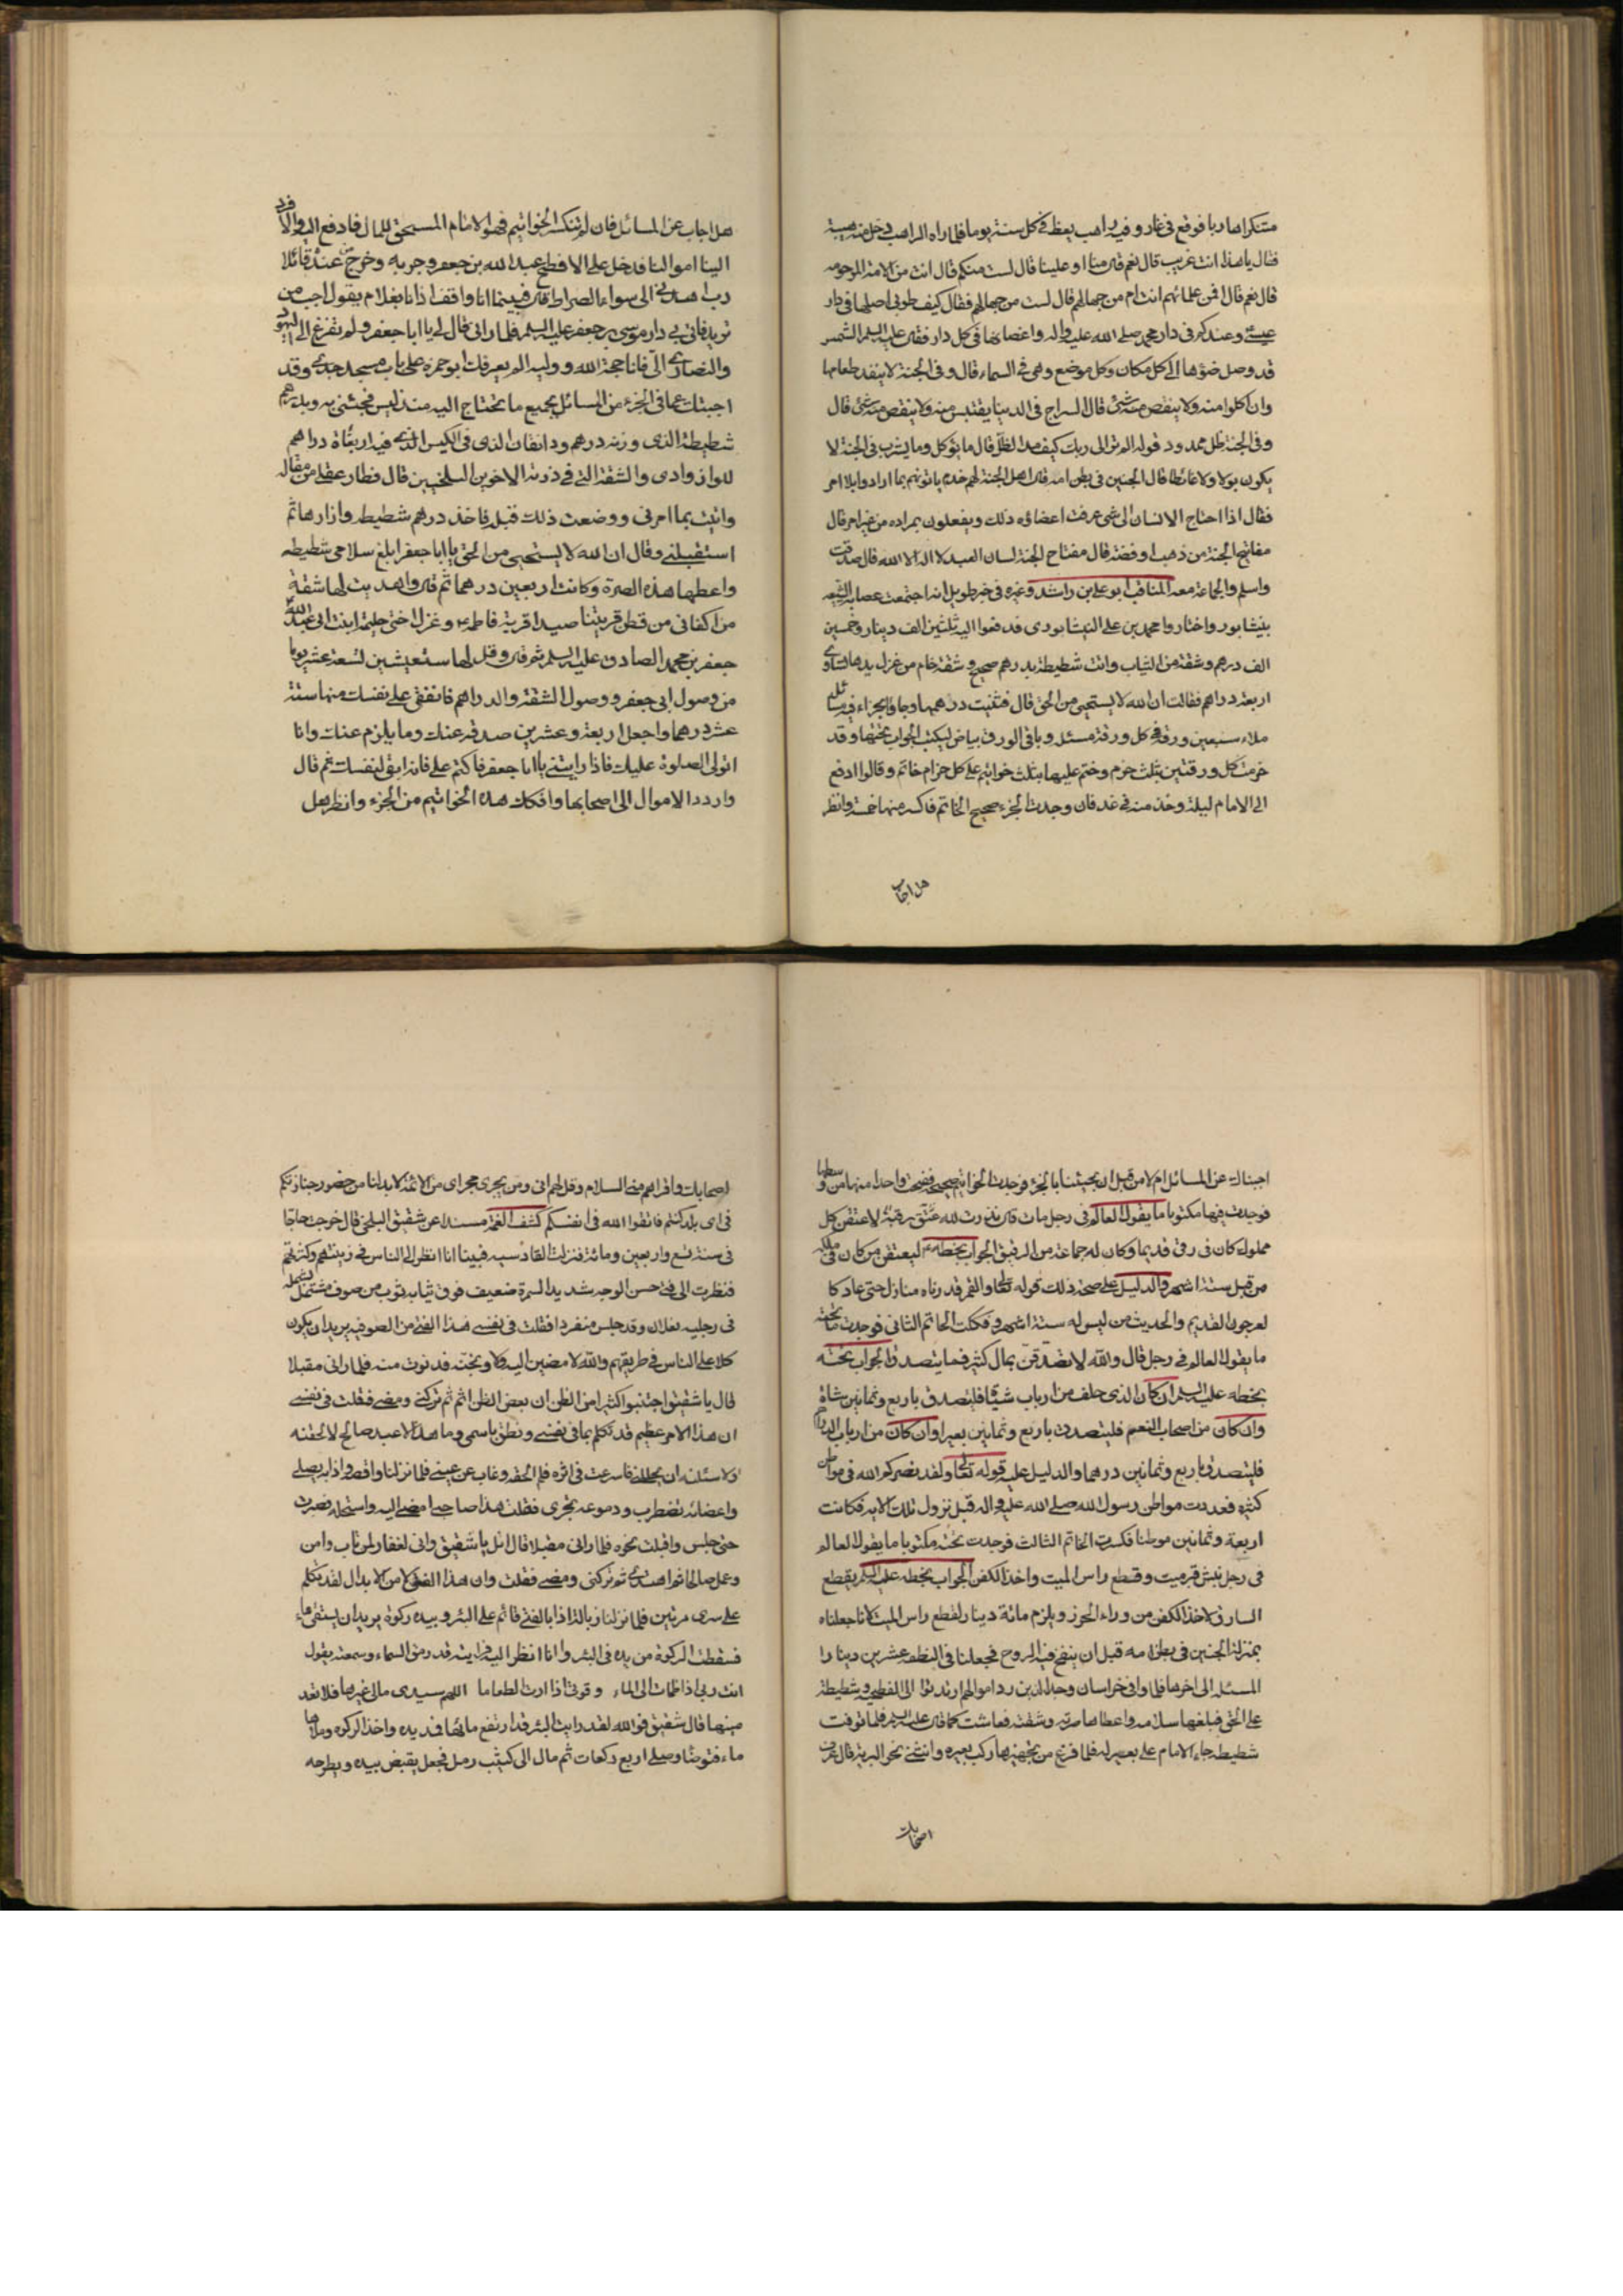 متنكرا هاربا فوقع فى غار وفيه راهب يعظ فى كل سنة يوما فلما راه الراهب دخله منه هيبة
فقال يا هذا انت غريب قال نعم قال منا او علينا قال لست منكم قال انت من الامة المرحومه
قال نعم قال افمن علمائهم انت ام من جهالهم قال لست من جهالهم فقال كيف طوبى اصلها فى دار
عيسى وعندكم فى دار محمد صلى الله عليه واله واغصانها فى كل دار فقال عليه السلم الشمس
قد وصل ضوؤها الى كل مكان وكل موضع وهى فى السماء قال وفى الجنة لا ينفد طعامها
وان اكلوا منه ولا ينقص منه شئ قال السراج فى الدنيا يقتبس منه ولا ينقص منه شئ قال
وفى الجنة ظل ممدود قوله الم تر الى ربك كيف مد الظل قال ما يؤكل وما يشرب فى الجنة لا
يكون بولا ولا غائطا قال الجنين فى بطن امه قال اهل الجنة لهم خدم ياتونهم بما ارادوا بلا امر
فقال اذا احتاج الانسان الى شئ عرفت اعضاؤه ذلك ويفعلون بمراده من غير امر قال
مفاتيح الجنة من ذهب او فضة قال مفتاح الجنة لسان العبد لا اله الا الله قال صدقت
واسلم والجماعة معه المناقب ابو على بن راشد وغيره فى خبر طويل انه اجتمعت عصابة الشيعه
بنيشابور واختاروا محمد بن على النيشابورى فدفعوا اليه ثلثين الف دينار وخمسين
الف درهم وشقة من الثياب واتت شطيطة بدرهم صحيح وشقة خام من غزل يدها تساوى
اربعة دراهم فقالت ان الله لا يستحيى من الحق قال فثنيت درهمها وجاؤا بجزء فيه مسائل
ملاء سبعين ورقة فى كل ورقة مسئلة وباقى الورق بياض ليكتب الجواب تحتها وقد
حزمت كل ورقتين بثلث حزم وختم عليها بثلث خواتيم على كل حزام خاتم وقالوا ادفع
الى الامام ليلة وخذ منه فى غد فان وجدت الجزء صحيح الخاتم فاكسر منها خمسة وانظر
هل اجاب
هل اجاب عن المسائل فان لم تنكسر الخواتيم فهو الامام المستحق للمال فادفع اليه والا فرد
الينا اموالنا فدخل على الافطح عبد الله بن جعفر وجربه وخرج عنه قائلا
رب اهدنى الى سواء الصراط قال فبينما انا واقف اذا انا بغلام يقول اجب من
تريد فاتى بى دار موسى بن جعفر عليه السلم فلما رانى قال لى يا ابا جعفر ولم تفزع الى اليهود
والنصارى الى فانا حجة الله ووليه الم يعرفك ابو حمزه على باب مسجد جدى وقد
اجبتك عما فى الجزء من المسائل بجميع ما تحتاج اليه منذ ليس فجئنى به وبدرهم
شطيطة الذى وزنه درهم ودانقان الذى فى الكيس الذى فيه اربعمائة دراهم
للوازوادى والشقة التى فى رزمة الاخوين البلخيين قال فطار عقلى من مقاله
واتيت بما امرنى ووضعت ذلك قبله فاخذ درهم شطيطه وازارها ثم
استقبلنى وقال ان الله لا يستحيى من الحق يا ابا جعفر ابلغ سلامى شطيطه
واعطها هذه الصرة وكانت اربعين درهما ثم قال واهديت لها شقة
من اكفانى من قطن قريتنا صيدا قرية فاطمة وغزل اختى حليمة ابنة ابى عبد الله
جعفر بن محمد الصادق عليه السلم ثم قال وقل لها ستعيشين تسعة عشر يوما
من وصول ابى جعفر ووصول الشقة والدراهم فانفقى على نفسك منها ستة
عشر درهما واجعل اربعة وعشرين صدقة عنك وما يلزم عنك وانا
اتولى الصلوة عليك فاذا رايتنى يا ابا جعفر فاكتم على فانه ابقى لنفسك ثم قال
واردد الاموال الى اصحابها وافكك هذه الخواتيم من الجزء وانظر هل
اجبناك عن المسائل ام لا من قبل ان يجيئنا بالجزء فوجدت الخواتيم صحيحة ففتحت واحدا منها من وسطها
فوجدت فيها مكتوبا ما يقول العالم فى رجل مات قال نذرت لله عتق رقبة لاعتقن كل
مملوك كان فى رقى قديما وكان له جماعة من الرقيق الجواب بخطه ليعتقن من كان فى ملكه
من قبل ستة اشهر والدليل على صحة ذلك قوله تعالى والقمر قدرناه منازل حتى عاد كا
لعرجون القديم والحديث من ليس له ستة اشهر وفككت الخاتم الثانى فوجدت ما تحته
ما يقول العالم فى رجل قال والله لاتصدقن بمال كثير فما يتصدق الجواب تحته
بخطه عليه السلم ان كان الذى حلف من ارباب شياه فليتصدق باربع وثمانين شاة
وان كان من اصحاب النعم فليتصدق باربع وثمانين بعيرا وان كان من ارباب الدراهم
فليتصدق باربع وثمانين درهما والدليل عليه قوله تعالى ولقد نصركم الله فى مواطن
كثيرة فعددت مواطن رسول الله صلى الله عليه واله قبل نزول تلك الاية فكانت
اربعة وثمانين موطنا فكسرت الخاتم الثالث فوجدت تحته مكتوبا ما يقول العالم
فى رجل نبش قبر ميت وقطع راس الميت واخذ الكفن الجواب بخطه عليه السلم يقطع
السارق لاخذ الكفن من وراء الحرز ويلزم مائة دينار لقطع راس الميت لانا جعلناه
بمنزلة الجنين فى بطن امه قبل ان ينفخ فيه الروح فجعلنا فى النطفة عشرين دينارا
المسئلة الى اخرها فلما وافى خراسان وجد الذين رد اموالهم ارتدوا الى الفطحيه وشطيطة
على الحق فبلغها سلامه واعطاها صرته وشقته فعاشت كما قال عليه السلم فلما توفت
شطيطه جاء الامام على بعير له فلما فرغ من تجهيزها ركب بعيره وانثنى نحو البرية قال عرف
اصحابك
اصحابك واقراهم منى السلام وقل لهم انى ومن يجرى مجراى من الائمة لا بد لنا من حضور جنائزكم
فى اى بلد كنتم فاتقوا الله فى انفسكم كشف الغمة مسندا عن شقيق البلخى قال خرجت حاجا
فى سنة تسع واربعين ومائة فنزلت القادسيه فبينا انا انظر الى الناس فى زينتهم وكثرتهم
فنظرت الى فتى حسن الوجه شديد السمرة ضعيف فوق ثيابه ثوب من صوف مشتمل بشمله
فى رجليه نعلان وقد جلس منفردا فقلت فى نفسى هذا الفتى من الصوفيه يريد ان يكون
كلا على الناس فى طريقهم والله لامضين اليه ولاوبخنه فدنوت منه فلما رانى مقبلا
قال يا شقيق اجتنبوا كثيرا من الظن ان بعض الظن اثم ثم تركنى ومضى فقلت فى نفسى
ان هذا الامر عظيم قد تكلم بما فى نفسى ونطق باسمى وما هذا الا عبد صالح لالحقنه
ولاسئلنه ان يحللنى فاسرعت فى اثره فلم الحقه وغاب عن عينى فلما نزلنا واقصه واذا به يصلى
واعضائه تضطرب ودموعه تجرى فقلت هذا صاحبى امضى اليه واستحله فصبرت
حتى جلس واقبلت نحوه فلما رانى مقبلا قال اتل يا شقيق وانى لغفار لمن تاب وامن
وعمل صالحا ثم اهتدى ثم تركنى ومضى فقلت وان هذا الفتى لمن الابدال لقد تكلم
على سرى مرتين فلما نزلنا زبالة اذا بالفتى قائم على البئر وبيده ركوة يريد ان يستقى ماء
فسقطت الركوة من يده فى البئر وانا انظر اليه فرايته قد رمق السماء وسمعته يقول
انت ربى اذا ظمات الى الماء وقوتى اذا اردت الطعاما اللهم سيدى مالى غيرها فلا تعد
منيها قال شقيق فوالله لقد رايت البئر قد ارتفع ماؤها فمد يده واخذ الركوه وملاها
ماء فتوضا وصلى اربع ركعات ثم مال الى كثيب رمل فجعل يقبض بيده ويطرحه